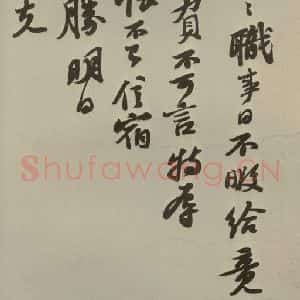 職事日不暇給竟
負不可言特辱
不可信宿
勝明日
Shufawang.CN